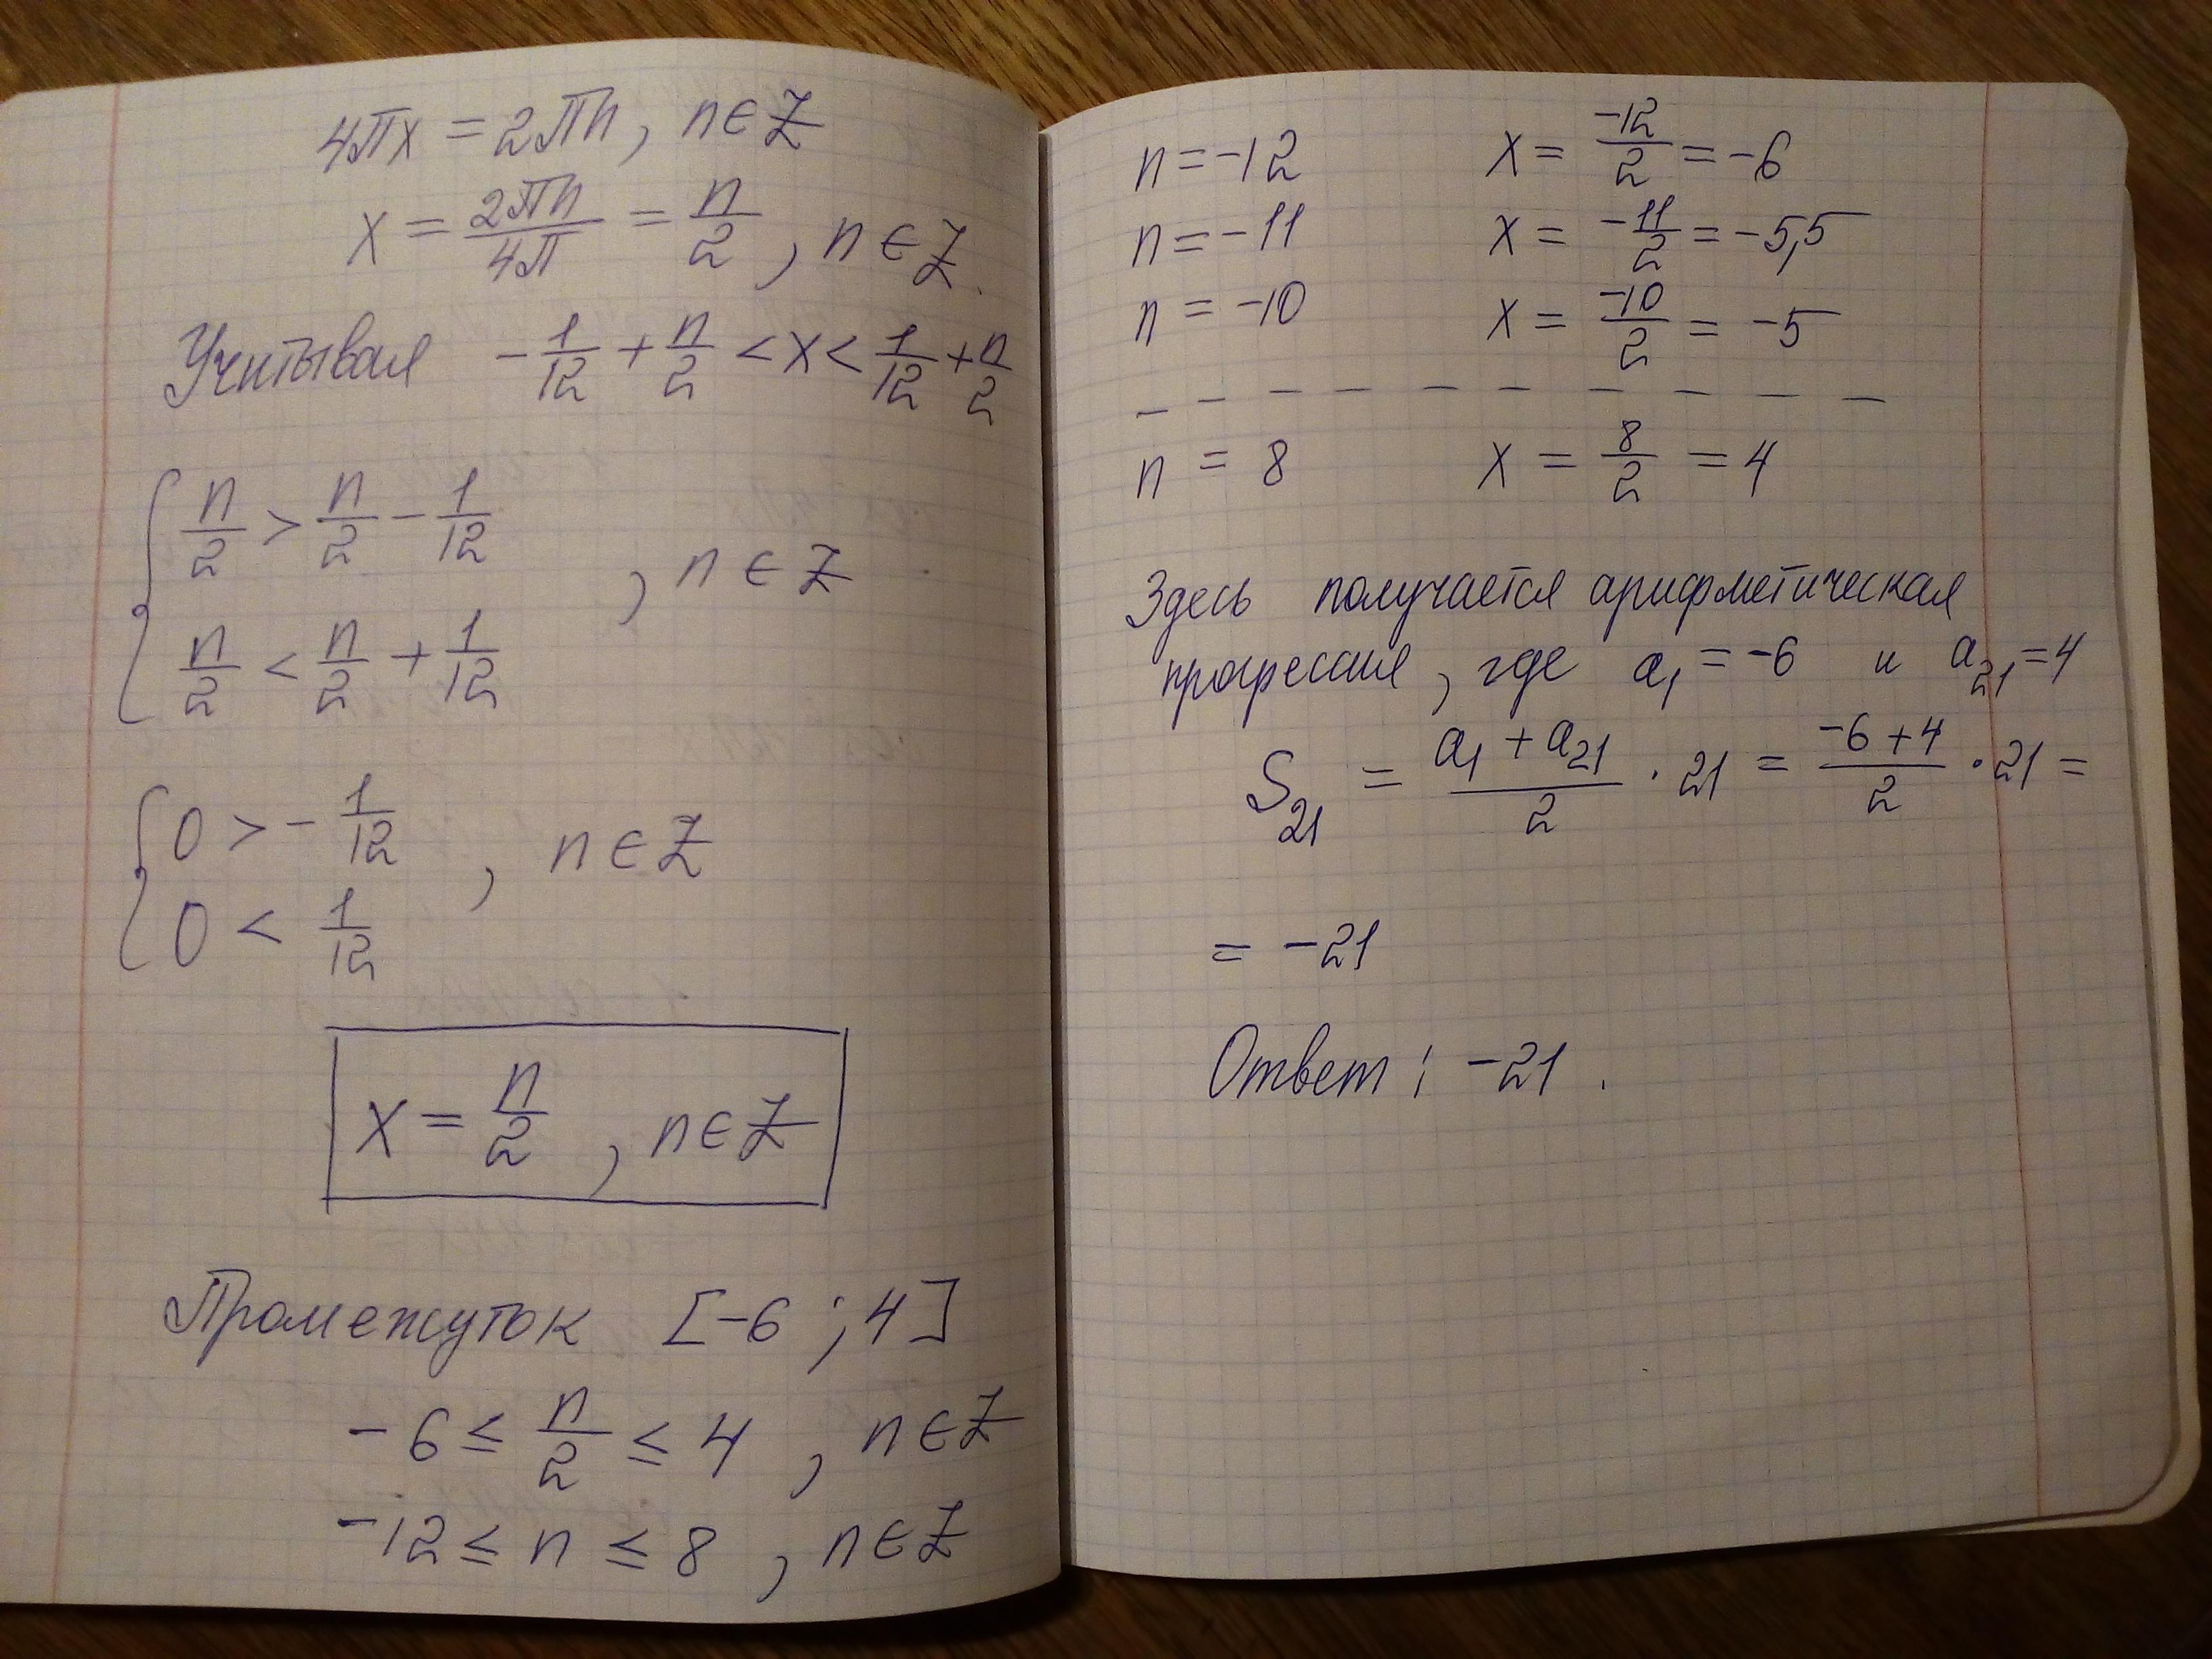 4πx = 2πn, n∈Z
x = 2πn/4π = n/2, n∈Z.
Учитывая -1/12 + n/2 < x < 1/12 + n/2
{ n/2 > n/2 - 1/12
, n∈Z
n/2 < n/2 + 1/12
{ 0 > -1/12
, n∈Z
0 < 1/12
x = n/2, n∈Z
Промежуток [-6; 4]
-6 ≤ n/2 ≤ 4, n∈Z
-12 ≤ n ≤ 8, n∈Z
n = -12 x = -12/2 = -6
n = -11 x = -11/2 = -5,5
n = -10 x = -10/2 = -5
– – – – – – – – – – –
n = 8 x = 8/2 = 4
Здесь получается арифметическая
прогрессия, где a₁ = -6 и a₂₁ = 4
S₂₁ = (a₁ + a₂₁)/2 · 21 = (-6 + 4)/2 · 21 =
= -21
Ответ: -21.